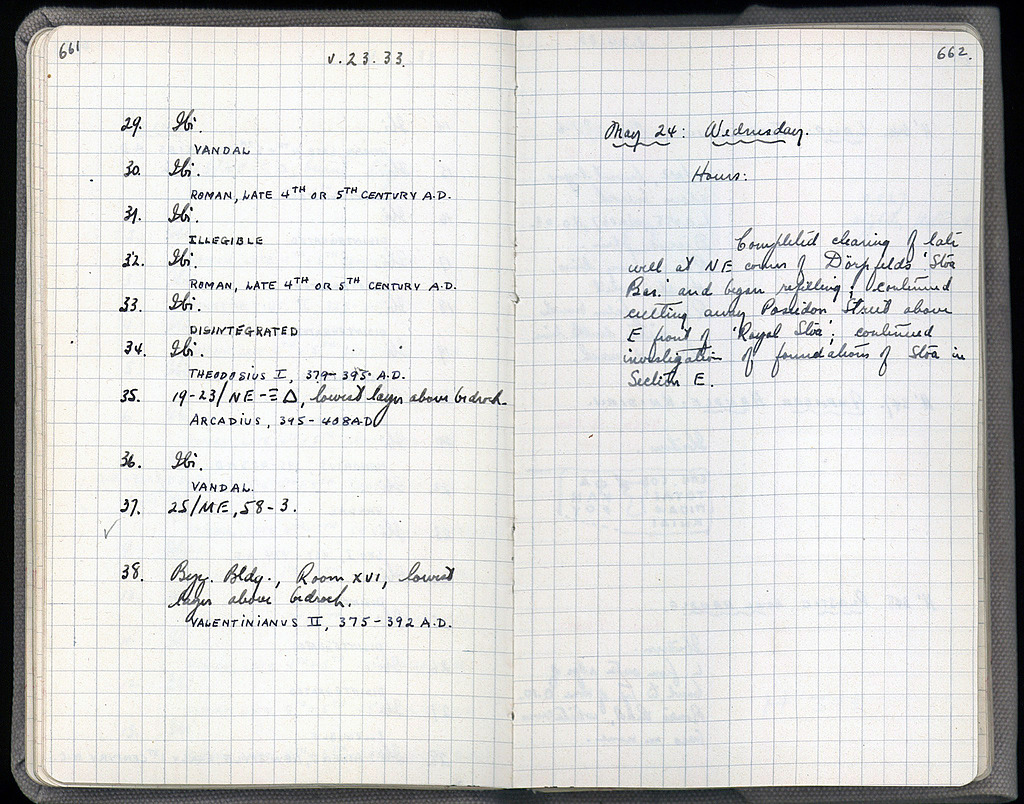 661
V. 23. 33.
29. Ibi.
VANDAL
30. Ibi.
ROMAN, LATE 4TH OR 5TH CENTURY A.D.
31. Ibi.
ILLEGIBLE
32. Ibi.
ROMAN, LATE 4TH OR 5TH CENTURY A.D.
33. Ibi.
DISINTEGRATED
34. Ibi.
THEODOSIUS I, 379-395 A.D.
35. 19-23/NE-ΞΔ, lowest layer above bedrock
ARCADIUS, 395-408 A.D
36. Ibi.
VANDAL.
37. 25/ME, 58-3.
38. Byz. Bldg., Room XVI, lowest
layer above bedrock.
VALENTINIANUS II, 375-392 A.D.
662.
May 24: Wednesday.
Hours:
Completed clearing of late
well at NE corner of Dörpfelds 'Stoa
Bas.' and began refilling; continued
cutting away Poseidon Street above
E front of 'Royal Stoa'; continued
investigation of foundations of Stoa in
Section E.